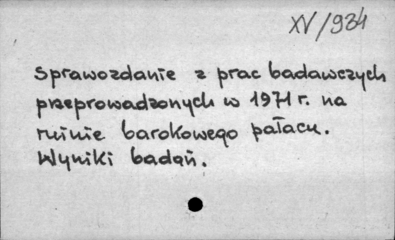 XV/934
Sprawozdanie z prac badawczych
przeprowadzonych w 1971 r. na
ruinie barokowego pałacu.
Wyniki badań.